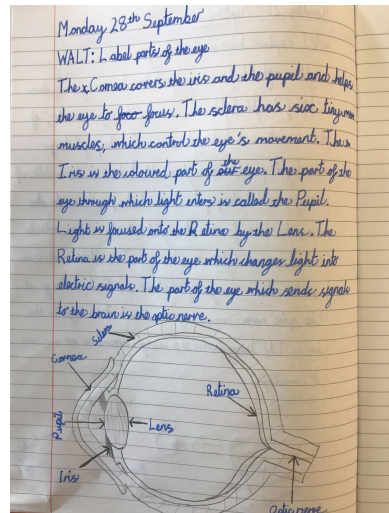 Monday 28th September
WALT: Label parts of the eye
The Cornea covers the iris and the pupil and helps
the eye to foco focus. The sclera has siox tiny
muscles, which control the eye's movement. The
Iris is the coloured part of our the eye. The part of the
eye through which light enters is called the Pupil.
Light is focused onto the Retina by the Lens. The
Retina is the part of the eye which changes light into
electric signals. The part of the eye which sends signals
to the brain is the optic nerve.
Sclera
Cornea
Retina
Pupil
Lens
Iris
Optic nerve